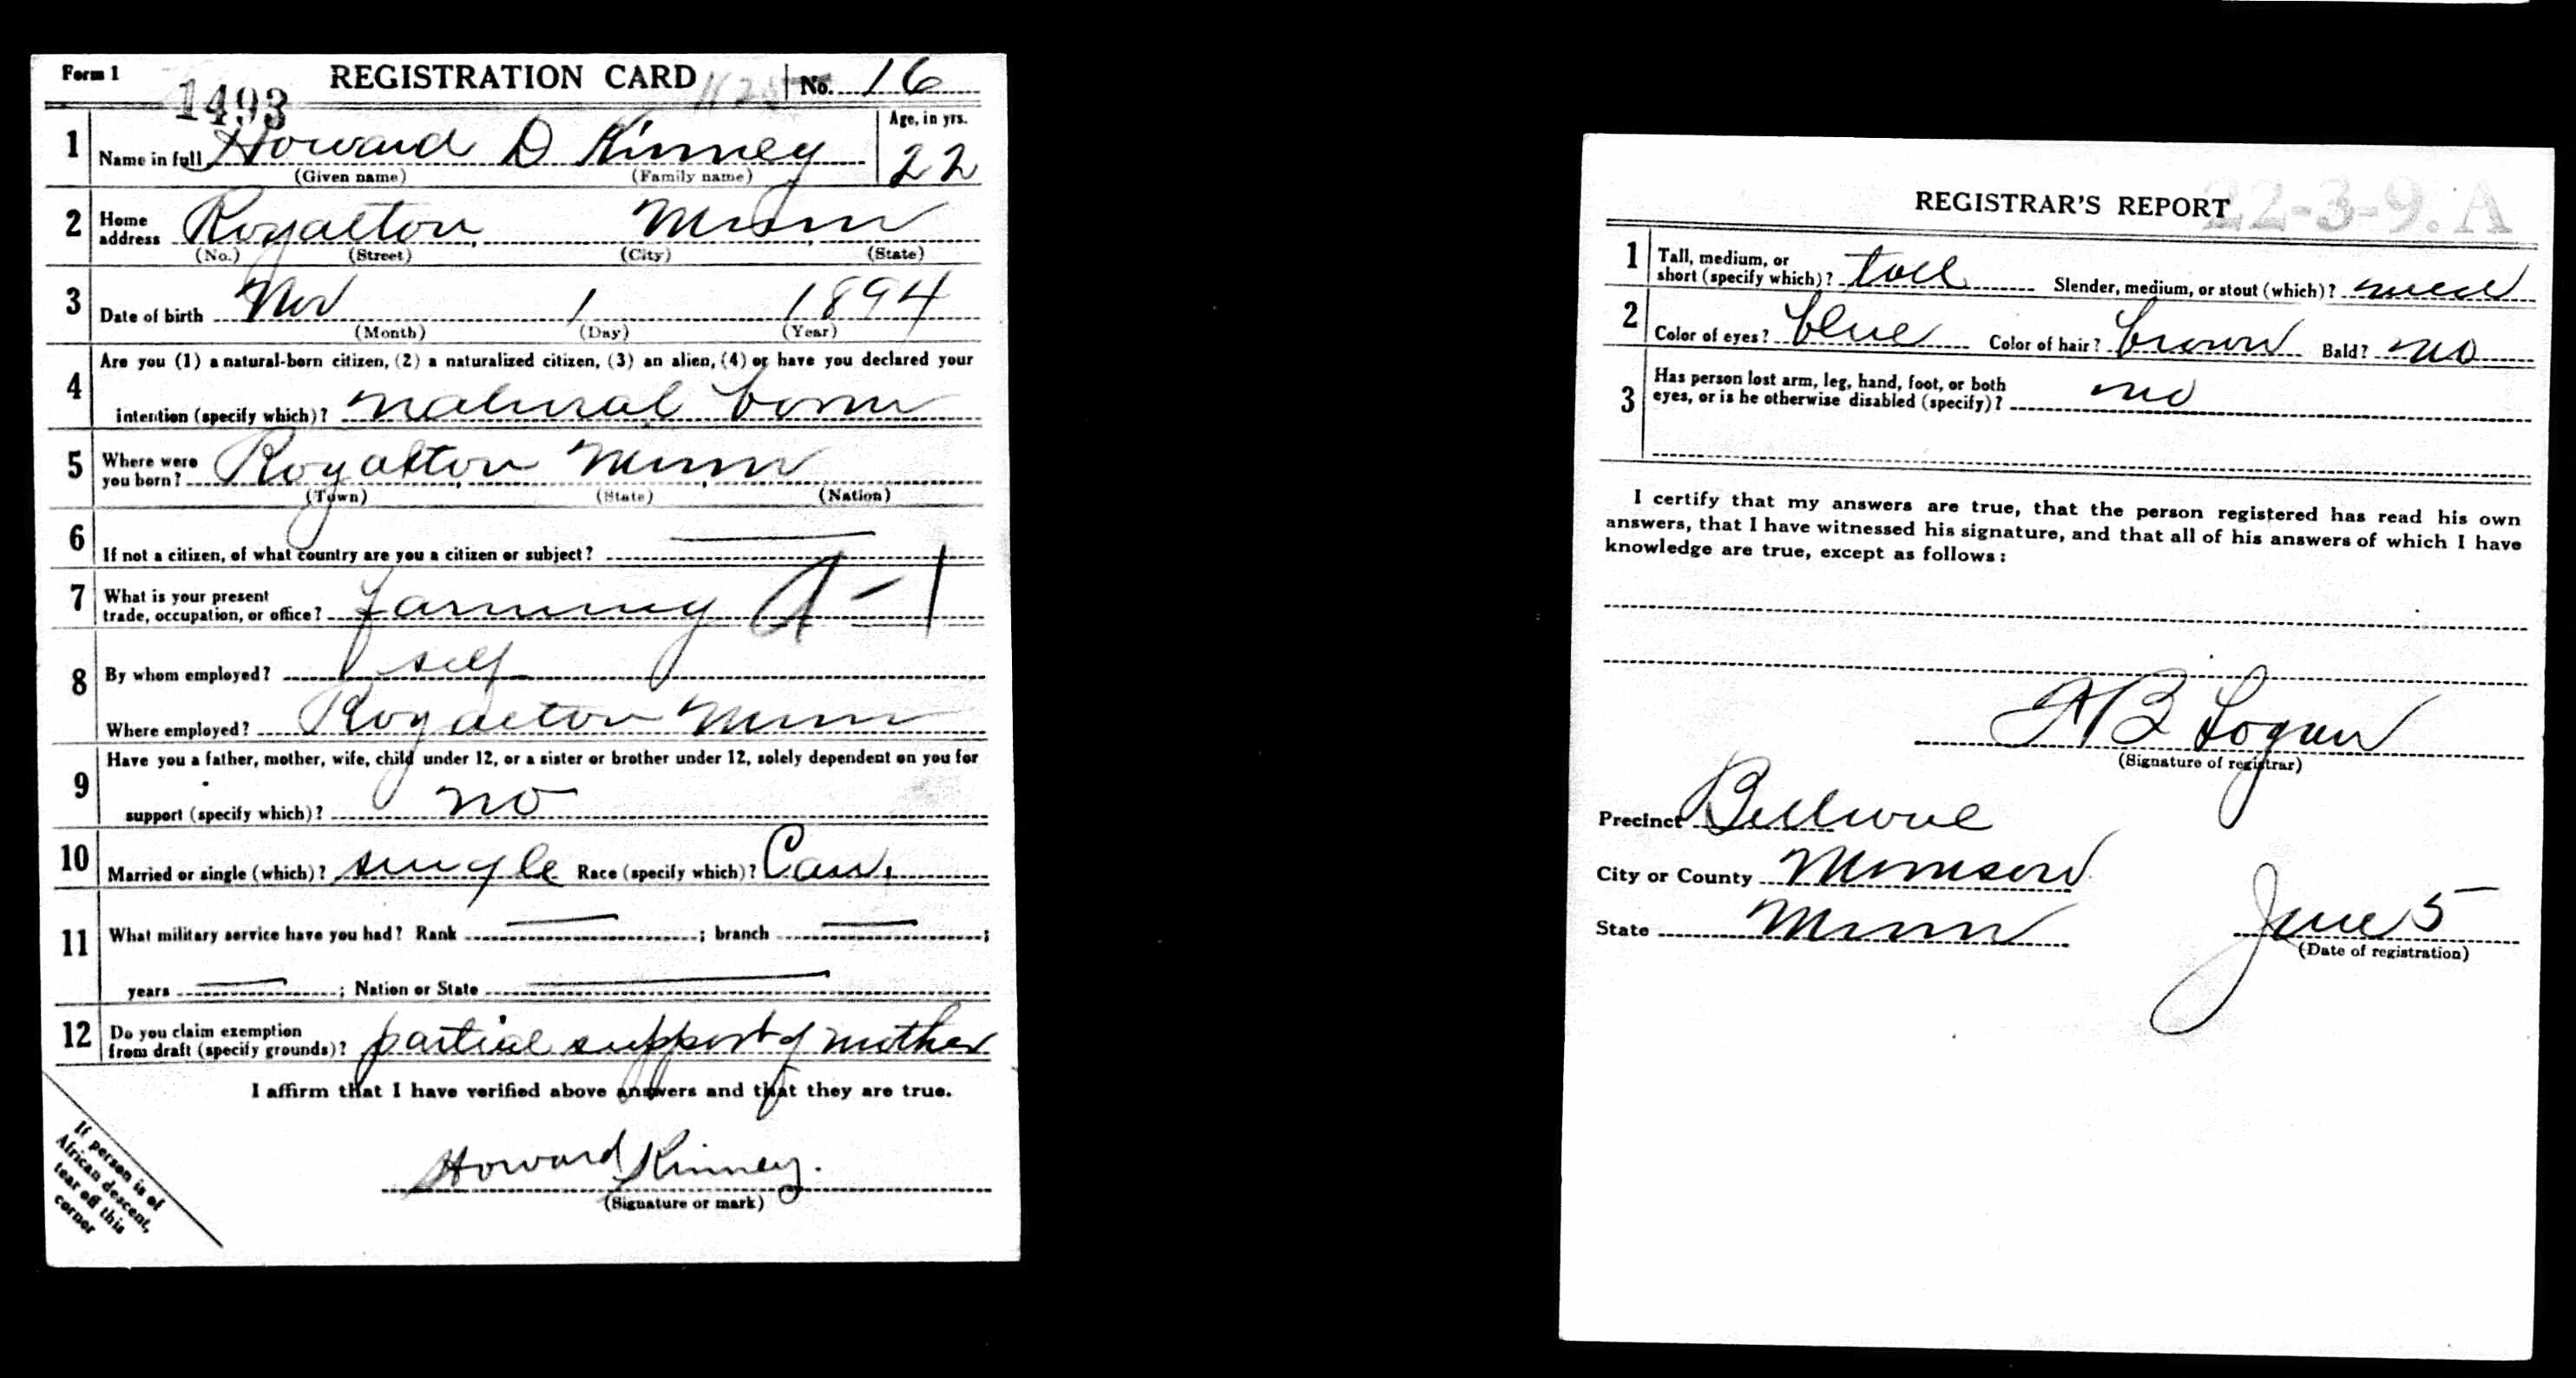 Form 1
1493
REGISTRATION CARD No. 16
1 Name in full Howard D Kinney
(Given name) (Family name)
Age, in yrs. 22
2 Home address Royalton, Minn
(No.) (Street) (City) (State)
3 Date of birth Nov 1 1894
(Month) (Day) (Year)
4 Are you (1) a natural-born citizen, (2) a naturalized citizen, (3) an alien, (4) or have you declared your
intention (specify which)? natural born
5 Where were you born? Royalton Minn
(Town) (State) (Nation)
6 If not a citizen, of what country are you a citizen or subject?
7 What is your present trade, occupation, or office? farming A-1
8 By whom employed? self
Where employed? Royalton Minn
9 Have you a father, mother, wife, child under 12, or a sister or brother under 12, solely dependent on you for
support (specify which)? no
10 Married or single (which)? single Race (specify which)? Cau.
11 What military service have you had? Rank ; branch ;
years ; Nation or State
12 Do you claim exemption from draft (specify grounds)? partial support of mother
I affirm that I have verified above answers and that they are true.
Howard Kinney.
(Signature or mark)
If person is of
African descent,
tear off this
corner
REGISTRAR'S REPORT 22-3-9. A
1 Tall, medium, or short (specify which)? tall Slender, medium, or stout (which)? med
2 Color of eyes? blue Color of hair? brown Bald? no
3 Has person lost arm, leg, hand, foot, or both
eyes, or is he otherwise disabled (specify)? no
I certify that my answers are true, that the person registered has read his own
answers, that I have witnessed his signature, and that all of his answers of which I have
knowledge are true, except as follows:
Logan
(Signature of registrar)
Precinct Bellevue
City or County Morrison
State Minn
June 5
(Date of registration)